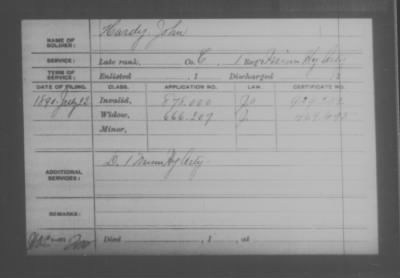 NAME OF SOLDIER: Hardy, John
SERVICE: Late rank, Co. C, 1 Reg't Hy Arty
TERM OF SERVICE: Enlisted , 1 Discharged , 1
DATE OF FILING. CLASS. APPLICATION NO. LAW. CERTIFICATE NO.
1890 July 22 Invalid, 875.000
Widow, 666.207
Minor,
ADDITIONAL SERVICES: D. 1 Hy Arty
REMARKS:
Died , 1 , at